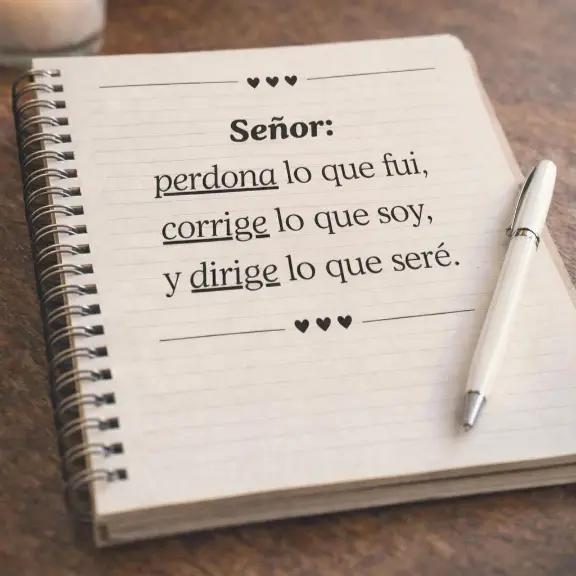 Señor:
perdona lo que fui,
corrige lo que soy,
y dirige lo que seré.